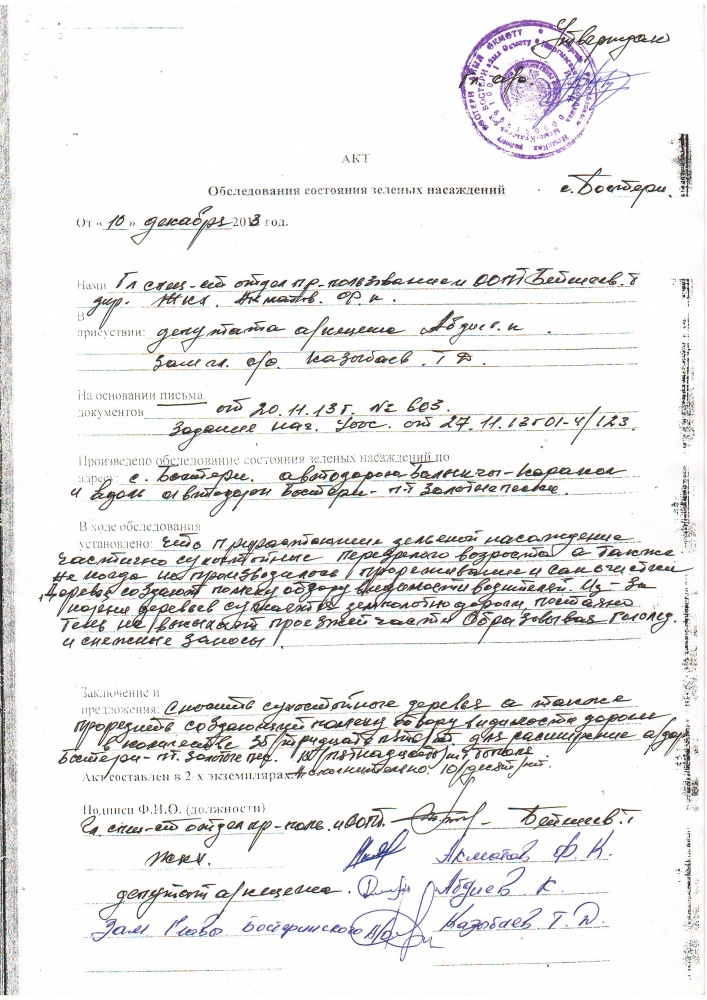 Утверждаю
Гл. а/о
АКТ
Обследования состояния зеленых насаждений с. Бостери.
От « 10 » декабря 2013 год.
Нами Гл спец-ст отдел пр-пользованием ООПТ Бейшеев. Т
дир. ЖКХ. Акматов. Ф. К.
В
присуствии: депутата а/кенеша Абдиев. К
Зам гл. а/о. Казыбаев. Т Д.
На основании письма,
документов от 20.11.13г. № 603.
Задание нач. от 27.11.13г 01-4/123.
Произведено обследование состояния зеленых насаждений по
адресу: с. Бостери. автодорога Балыкчы-Каракол
и вдоль автодороги Бостери- п-т Золотые пески.
В ходе обследования
установлено: что произрастающие зеленой насаждение
частично сухостойные перезрелого возроста а также
не когда не произвозилось прореживание и сан. очистки
Деревья создают помеху обзору видимости водителей. Из-за
деревьев сужается земполотно дороги, постаяно
Тень на проезжей части Образовывая гололед.
и снежные заносы.
Заключение и
предложения: Сносить сухостойные деревья а также
проредить создающий помеху обзору видимости дороги
в количестве 35/тридцать пять/шт. для расширение а/дор
Бостери-пт. Золотые пес. 15/пятнадцать/шт. тополя.
Акт составлен в 2-х экземплярах. 10/десять/шт.
Подписи Ф.И.О. (должности)
Гл. спец-ст отдел пр-польз. и ООПТ. Бейшеев. Т
ЖКХ. Акматов Ф. К.
депутат а/кенеша. Абдиев К.
Зам Глава Бостеринского а/о Казыбаев Т. Д.